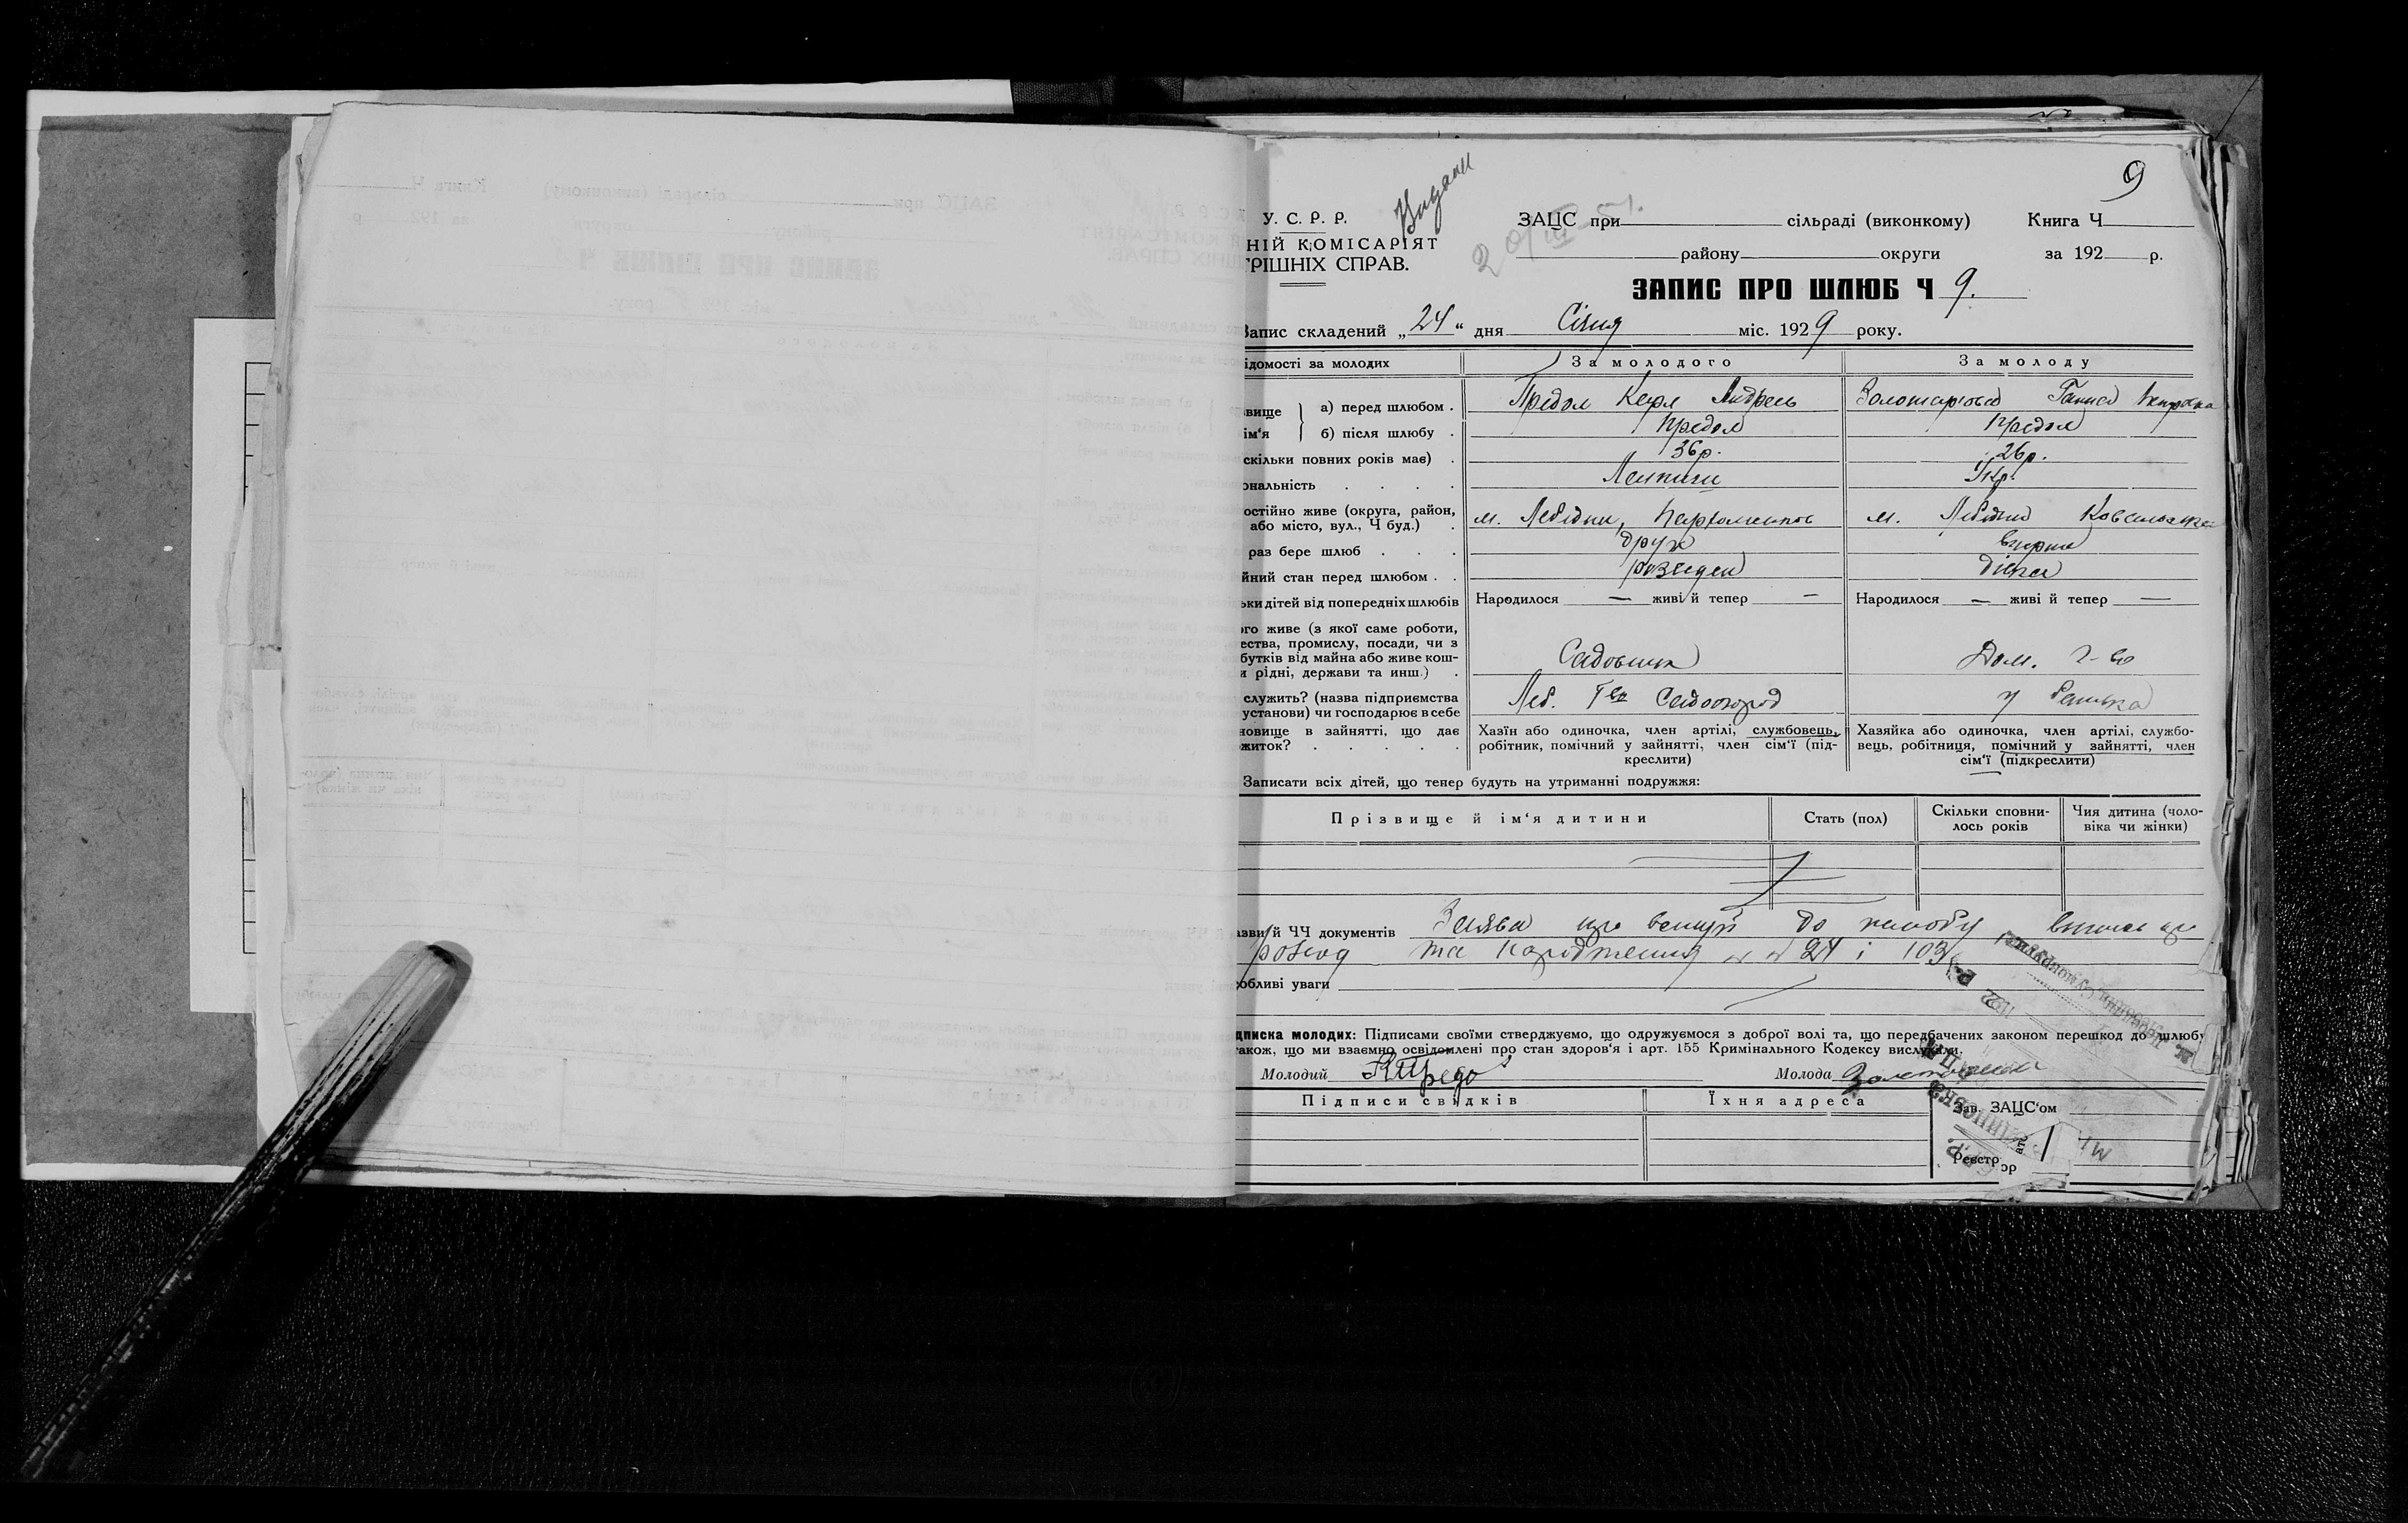 9
У. С. Р. Р.
ЗАЦС при сільраді (виконкому) Книга Ч
НІЙ КОМІСАРІЯТ
РІШНІХ СПРАВ.
району округи за 192 р.
ЗАПИС ПРО ШЛЮБ Ч 9.
Запис складений „24“ дня Січня міс. 1929 року.
ідомості за молодих За молодого За молоду
вище а) перед шлюбом . Предол Карл Андреев Золотарьова Ганна
ім‘я б) після шлюбу . Предол Предол
скільки повних років має) . 36р. 26р.
ональність . . . . Латиш Укр.
остійно живе (округа, район,
або місто, вул., Ч буд.) . м. Лебідин, м. Лебідин
раз бере шлюб . . . друж вперше
йний стан перед шлюбом . . розведен дівка
ьки дітей від попередніх шлюбів Народилося — живі й тепер — Народилося — живі й тепер —
ого живе (з якої саме роботи,
ества, промислу, посади, чи з
бутків від майна або живе кош-
и рідні, держави та инш.) . Садовник Дом. г-во
служить? (назва підприємства
установи) чи господарює в себе Леб. Т-во Садоогород у батька
новище в зайнятті, що дає
житок? . . . . .
Хазїн або одиночка, член артілі, службовець,
робітник, помічний у зайнятті, член сім‘ї (під-
креслити)
Хазяйка або одиночка, член артілі, службо-
вець, робітниця, помічний у зайнятті, член
сім‘ї (підкреслити)
Записати всіх дітей, що тепер будуть на утриманні подружжя:
Прізвище й ім‘я дитини Стать (пол) Скільки сповни-
лось років Чия дитина (чоло-
віка чи жінки)
азви й ЧЧ документів Заява про вступ до шлюбу
розвод та народження 24 і 103
обливі уваги
дписка молодих: Підписами своїми стверджуємо, що одружуємося з доброї волі та, що передбачених законом перешкод до шлюбу
акож, що ми взаємно освідомлені про стан здоров‘я і арт. 155 Кримінального Кодексу вислухали.
Молодий Молода
Підписи свідків Їхня адреса Зав. ЗАЦС‘ом
Реєстр